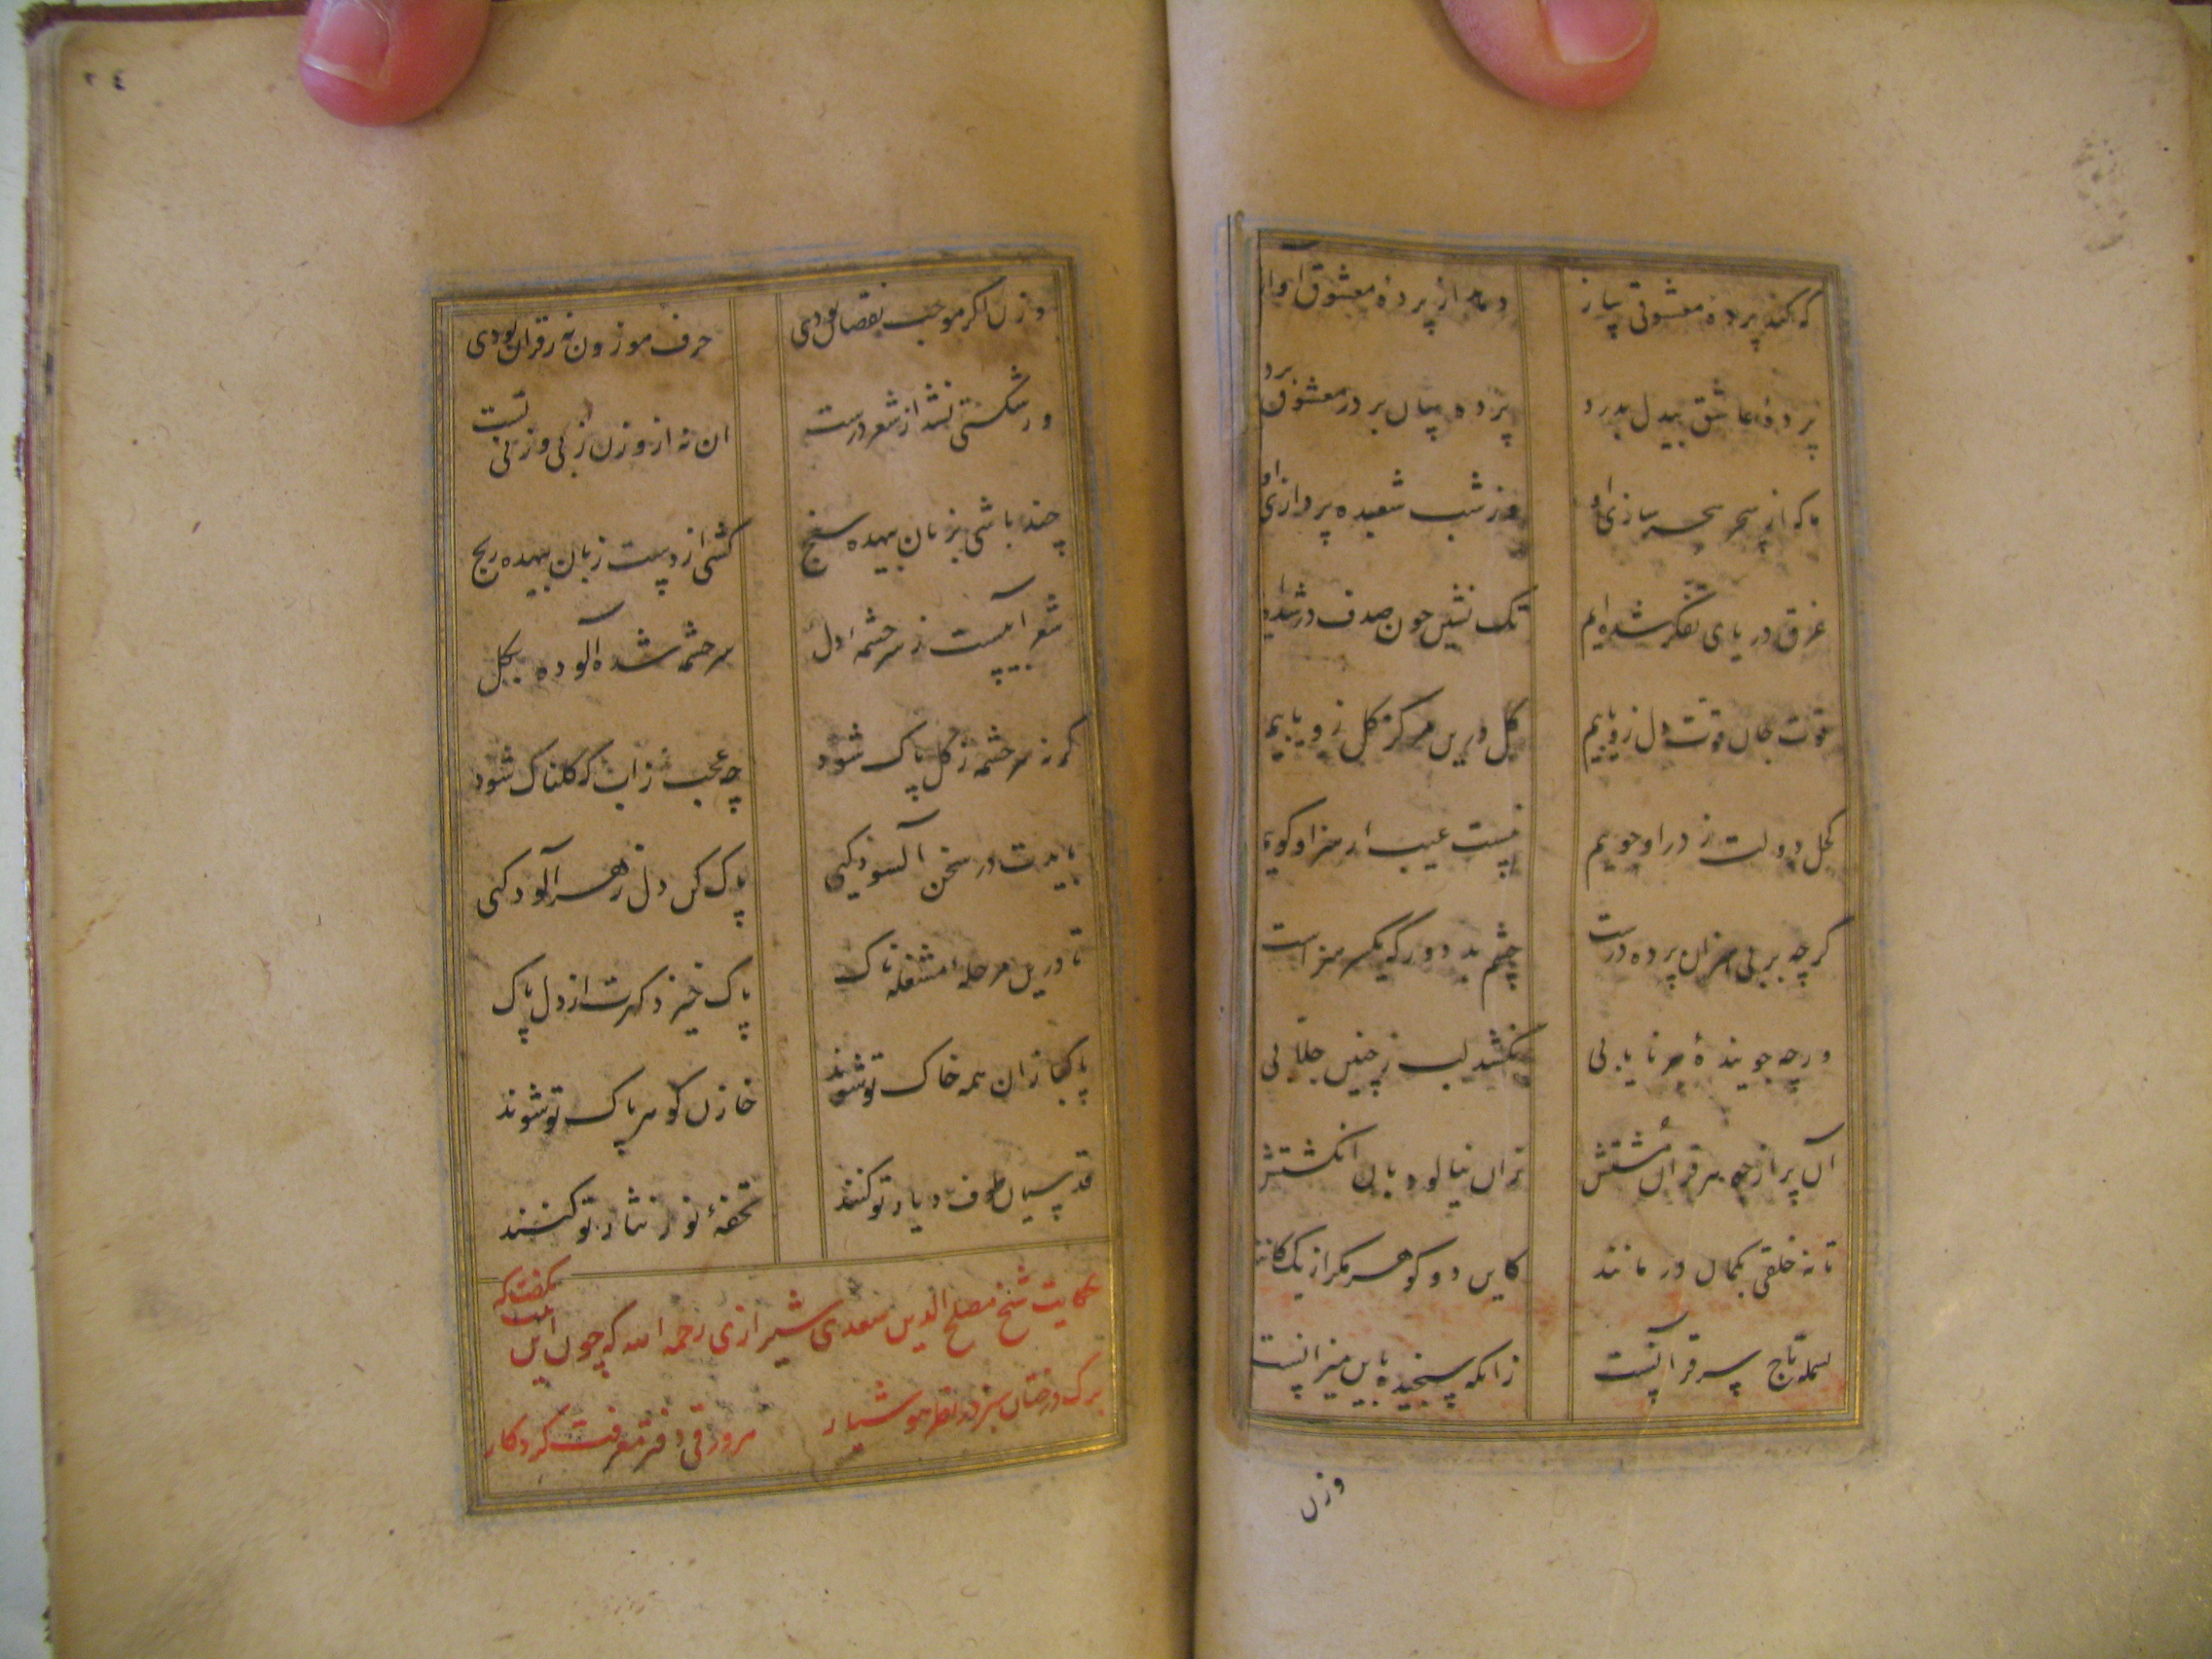 که کند پردهٔ معشوقی ساز
دمد از پردهٔ معشوق آواز
پردهٔ عاشق بیدل بدرد
پرده سان بر در معشوق برد
ما که از سحر سحرسازی او
وز شب شعبده پردازی او
غرق دریای تفکر شده ایم
تک نشین چون صدف در شده ایم
قوت جان قوت دل زو یابیم
گل درین مرکز گل زو یابیم
کحل دولت ز در او جوییم
نیست عیب ار هنر او گوییم
گرچه بر بی هنران پرده درست
چشم بد دور که یکسر هنر است
ورچه جویندهٔ هر نایابی
نکشد لب ز چنین جلابی
آن پر از جوهر قرآن مشتش
زان نیالود بان انگشتش
تا نه خلقی بگمان در مانند
کاین دو گوهر مگر از یک کانند
بسمله تاج سر قرآنست
زانکه سنجیده باین میزانست
وزن
٢٤
وزن اگر موجب نقصان بودی
حرف موزون نه ز قرآن بودی
ور شکستی نشد از شعر درست
آن نه از وزن ز بی وزنی تست
چند باشی بزبان بیهده سنج
کشی از دست زبان بیهده رنج
شعر آبیست ز سرچشمه دل
سرچشمه شده آلوده بگل
گر نه سرچشمه ز گل پاک شود
چه عجب زاب که گلناک شود
بایدت در سخن آسودگیی
پاک کن دل ز هر آلودگیی
تا درین مرحلهٔ مشغله ناک
پاک خیزد گهرت از دل پاک
پاکبازان همه خاک تو شوند
خازن گوهر پاک تو شوند
قدسیان طوف دیار تو کنند
تحفهٔ نور نثار تو کنند
حکایت شیخ مصلح الدین سعدی شیرازی رحمه الله که چون این بیت بگفت که
برگ درختان سبز در نظر هوشیار
هر ورقی دفتر معرفت کردگار